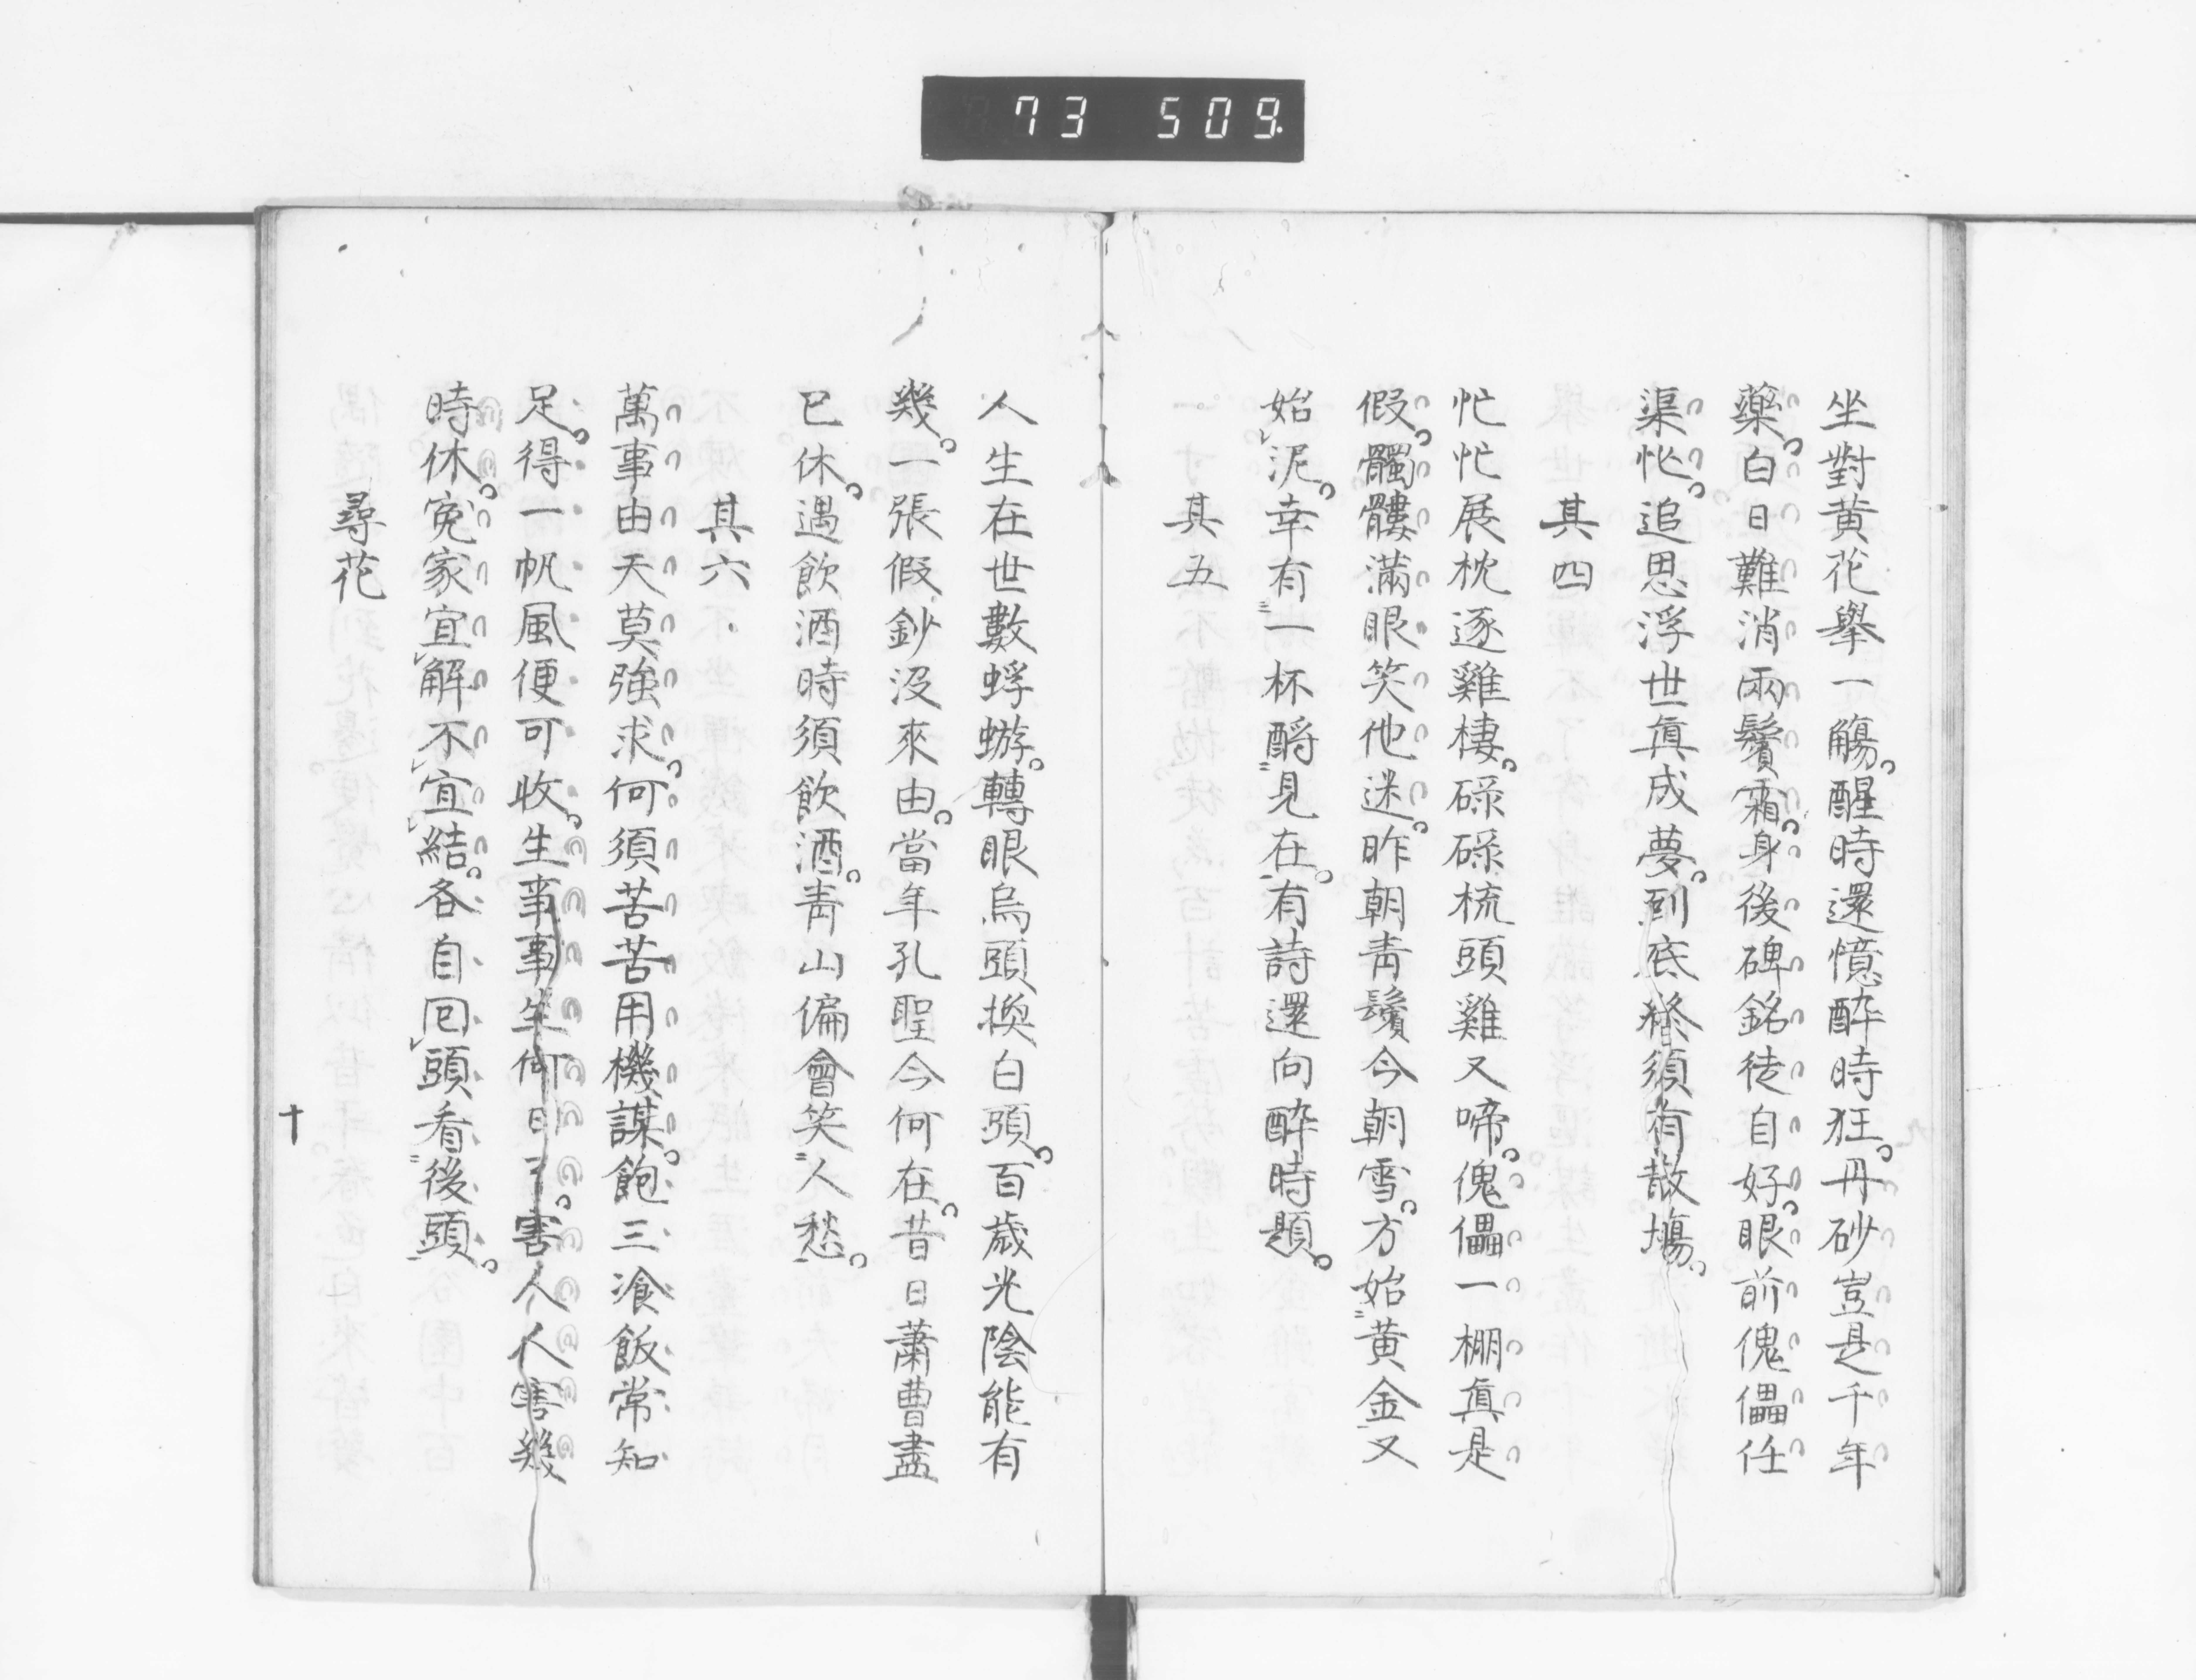 73 509
坐對黄花舉一觴。醒時還憶醉時狂。丹砂豈是千年
藥。白日難消兩鬢霜。身後碑銘徒自好。眼前傀儡任
渠忙。追思浮世眞成夢。到底終須有散場。
其四
忙忙展枕逐雞棲。碌碌梳頭雞又啼。傀儡一棚眞是
假。髑髏滿眼笑他迷。昨朝青鬢今朝雪。方始黄金又
始泥。幸有一杯酹見在。有詩還向醉時題。
其五
人生在世數蜉蝣。轉眼烏頭換白頭。百歲光陰能有
幾。一張假鈔沒來由。當年孔聖今何在。昔日蕭曹盡
已休。遇飲酒時須飲酒。青山偏會笑人愁。
其六
萬事由天莫強求。何須苦苦用機謀。飽三飡飯常知
足。得一帆風便可收。生事事生何日了。害人人害幾
時休。寃家宜解不宜結。各自回頭看後頭。
尋花
十